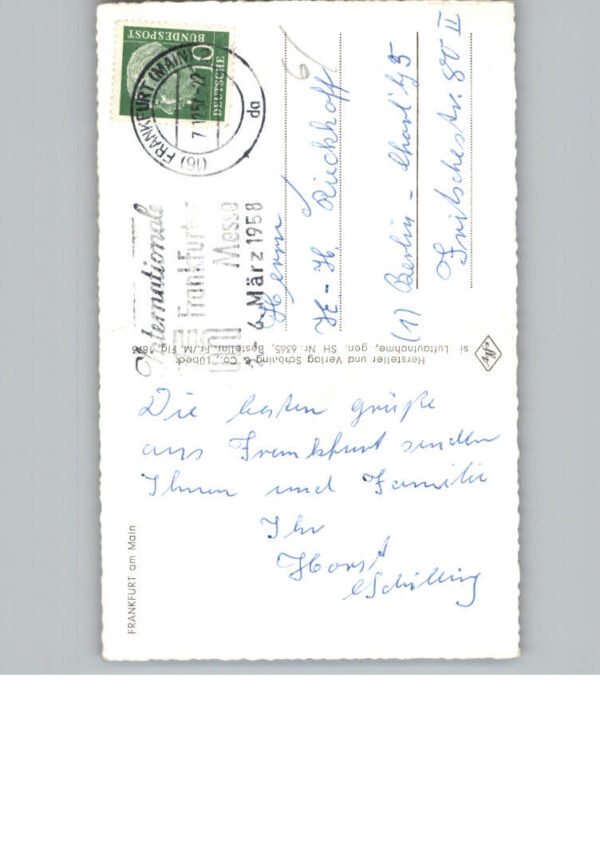 Die besten Grüße
aus Frankfurt senden
Ihnen und Familie
Ihr
Horst
Schilling
FRANKFURT am Main
Hersteller und Verlag Schöning & Co., Lübeck
Luftaufnahme, gen. SH Nr. 6365, Bestellnr. Fr./M. Flg. 1876
DEUTSCHE
BUNDESPOST
10
(16) FRANKFURT (MAIN)
da
Internationale
Frankfurter
Messe
6. März 1958
Herrn
H.-H. Rieckhoff
(1) Berlin - Charl'bg 5
Fritschestr. 80 II